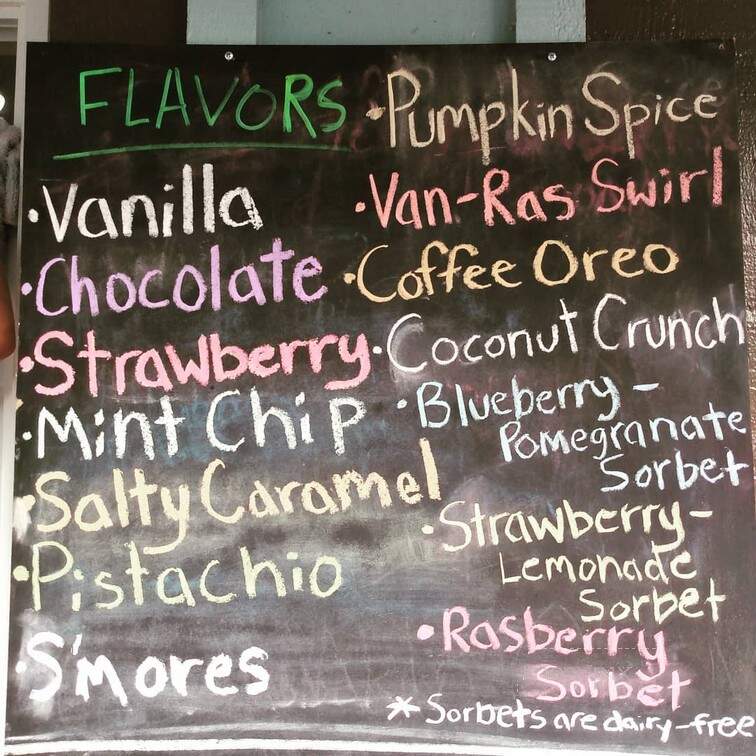 FLAVORS
•Vanilla
•Chocolate
•Strawberry
•Mint Chip
•Salty Caramel
•Pistachio
•S'mores
•Pumpkin Spice
•Van-Ras Swirl
•Coffee Oreo
•Coconut Crunch
•Blueberry-
Pomegranate
Sorbet
•Strawberry-
Lemonade
Sorbet
•Rasberry
Sorbet
* Sorbets are dairy-free